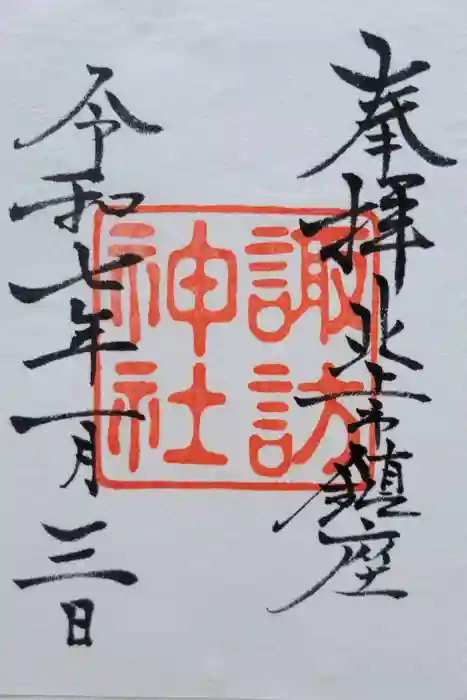 奉拝 北上市鎮座
諏訪
神社
令和七年一月三日